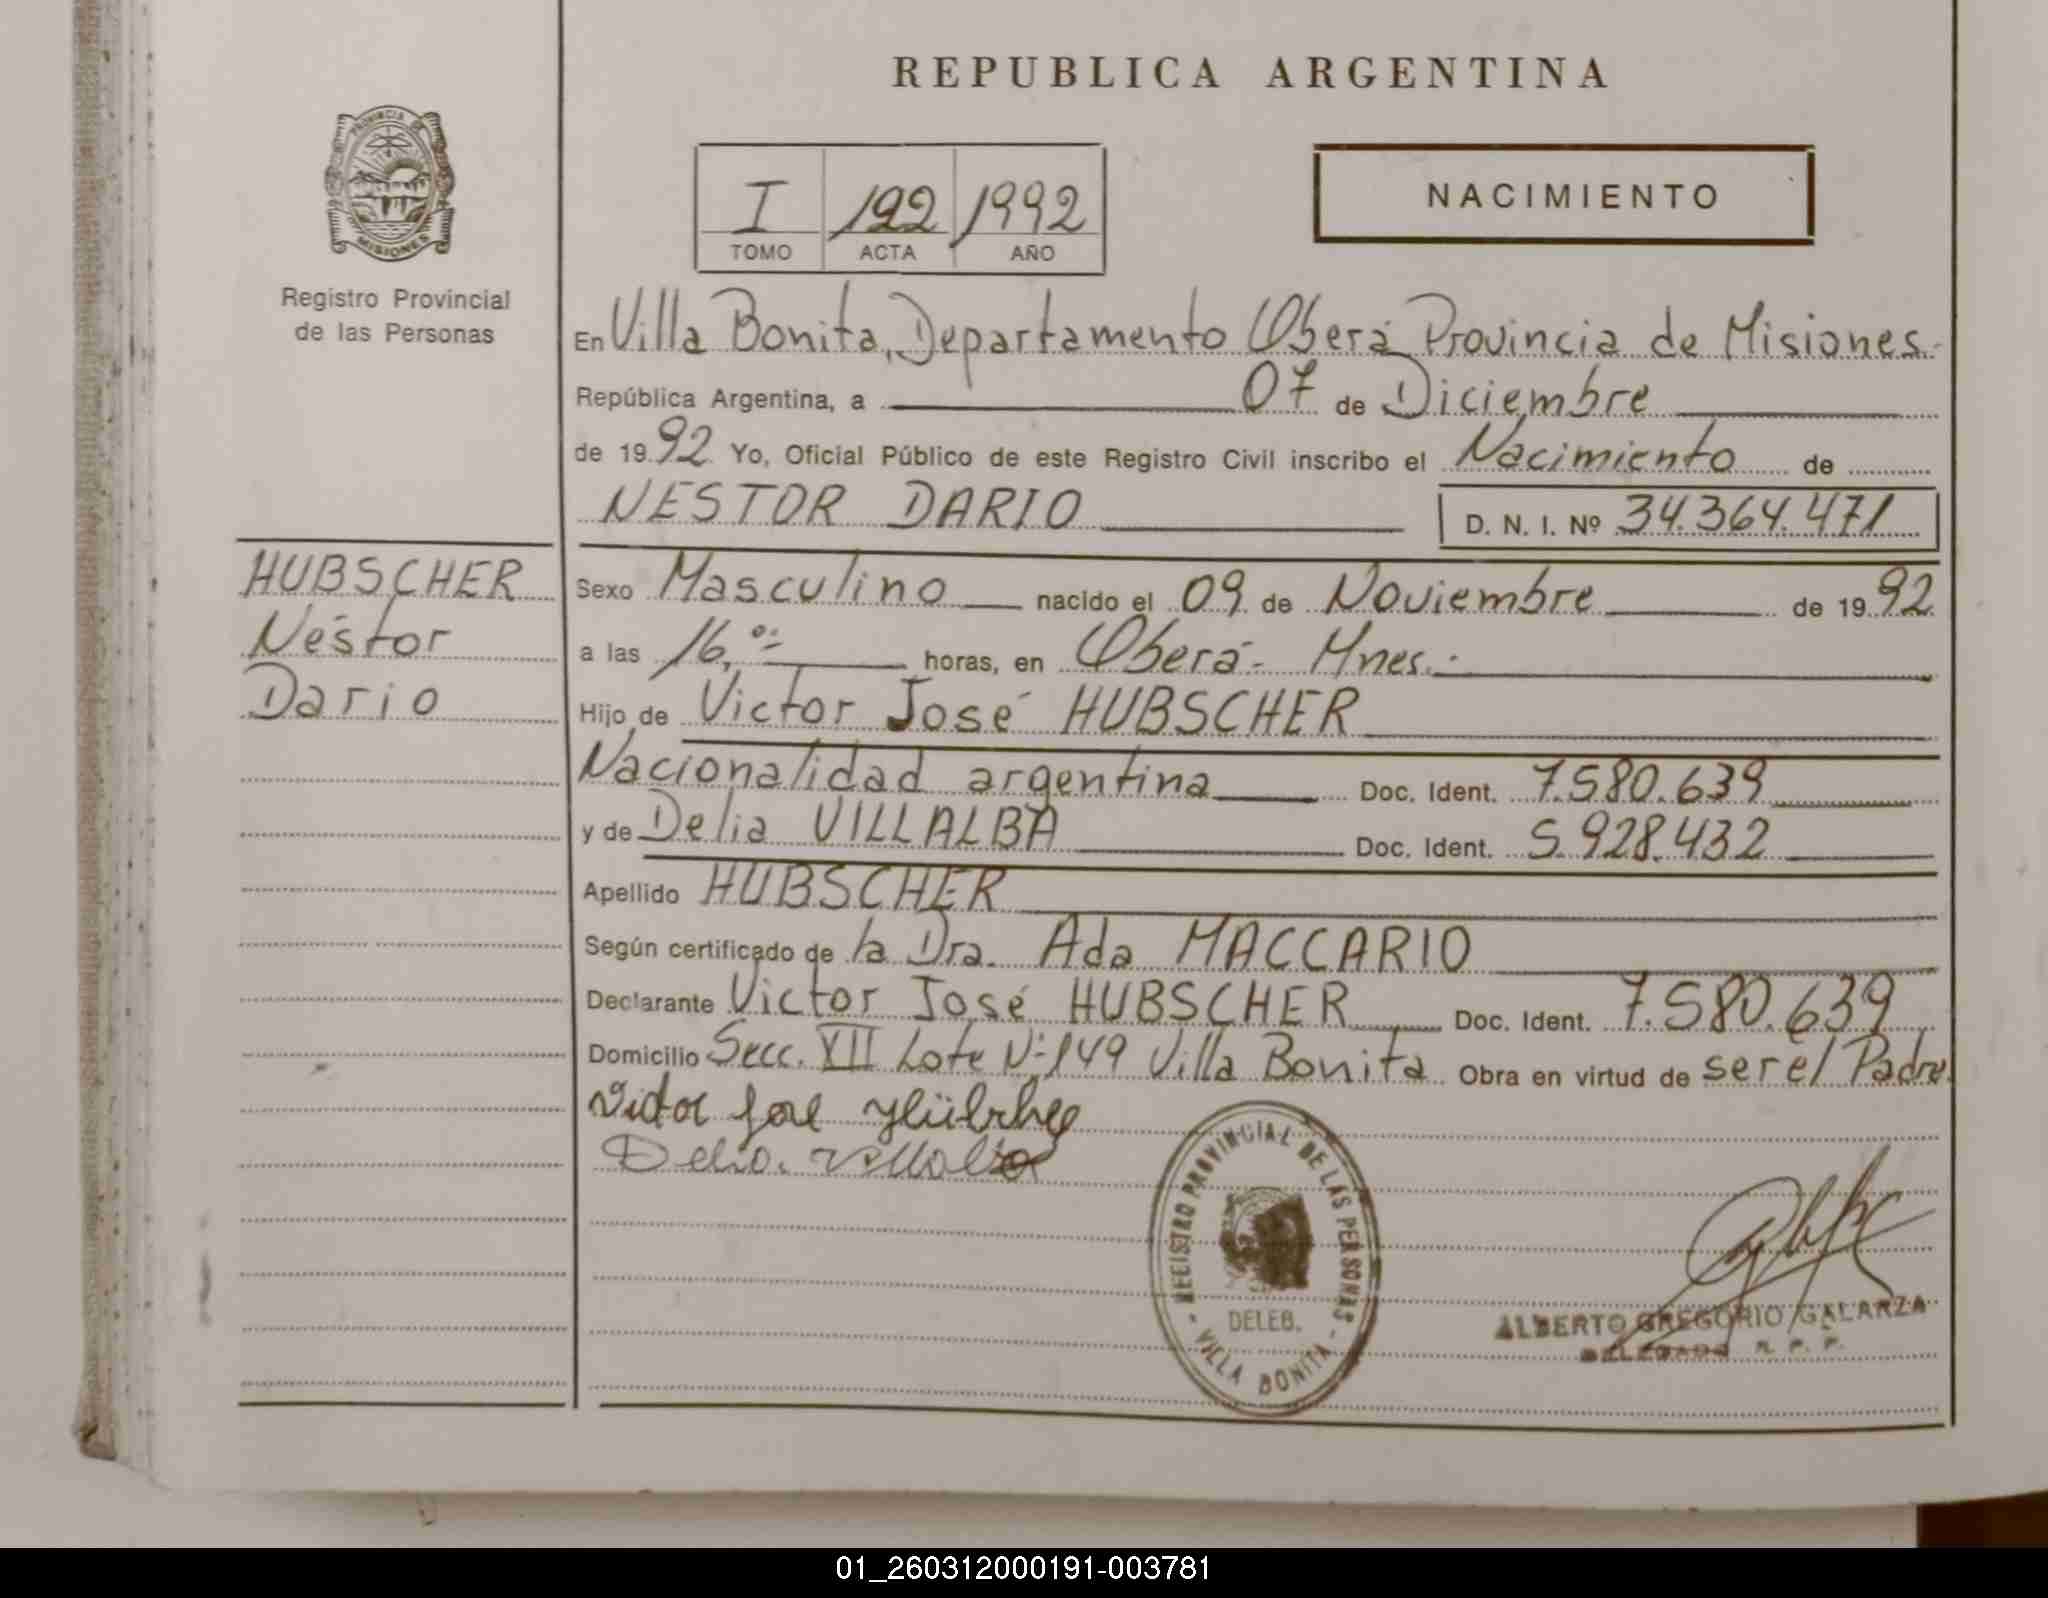 REPUBLICA ARGENTINA
PROVINCIA DE
MISIONES
Registro Provincial
de las Personas
I 192 1992
TOMO ACTA AÑO
NACIMIENTO
En Villa Bonita, Departamento Oberá Provincia de Misiones.-
República Argentina, a 07 de Diciembre
de 1992 Yo, Oficial Público de este Registro Civil inscribo el Nacimiento de
NESTOR DARIO D. N. I. Nº 34.364.471
HUBSCHER
Néstor
Dario
Sexo Masculino nacido el 09 de Noviembre de 1992
a las 16,oo horas, en Oberá- Mnes.-
Hijo de Victor José HUBSCHER
Nacionalidad argentina Doc. Ident. 7.580.639
y de Delia VILLALBA Doc. Ident. 5.928.432
Apellido HUBSCHER
Según certificado de la Dra. Ada MACCARIO
Declarante Victor José HUBSCHER Doc. Ident. 7.580.639
Domicilio Secc. XII Lote Nº149 Villa Bonita Obra en virtud de ser el Padre.
Victor José
Delia Villalba
REGISTRO PROVINCIAL DE LAS PERSONAS
DELEG.
- VILLA BONITA -
ALBERTO GREGORIO GALARZA
DELEGADO R. P. P.
01_260312000191-003781